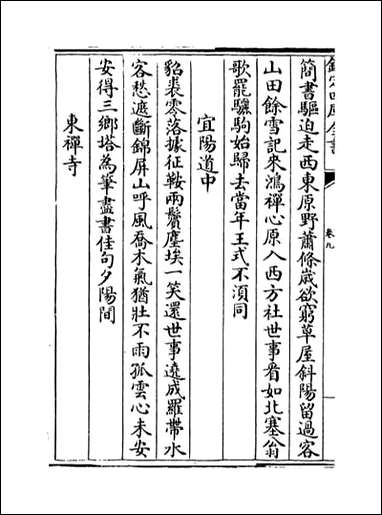 欽定四庫全書
卷九
簡書驅迫走西東原野蕭條歲欲窮草屋斜陽留過客
山田餘雪記來鴻禪心原入西方社世事看如北塞翁
歌罷驪駒始歸去當年王式不湏同
宜陽道中
貂裘零落據征鞍兩鬢塵埃一笑還世事遶成羅帶水
客愁遮斷錦屏山呼風喬木氣猶壯不雨孤雲心未安
安得三鄉塔為筆盡書佳句夕陽間
東禪寺